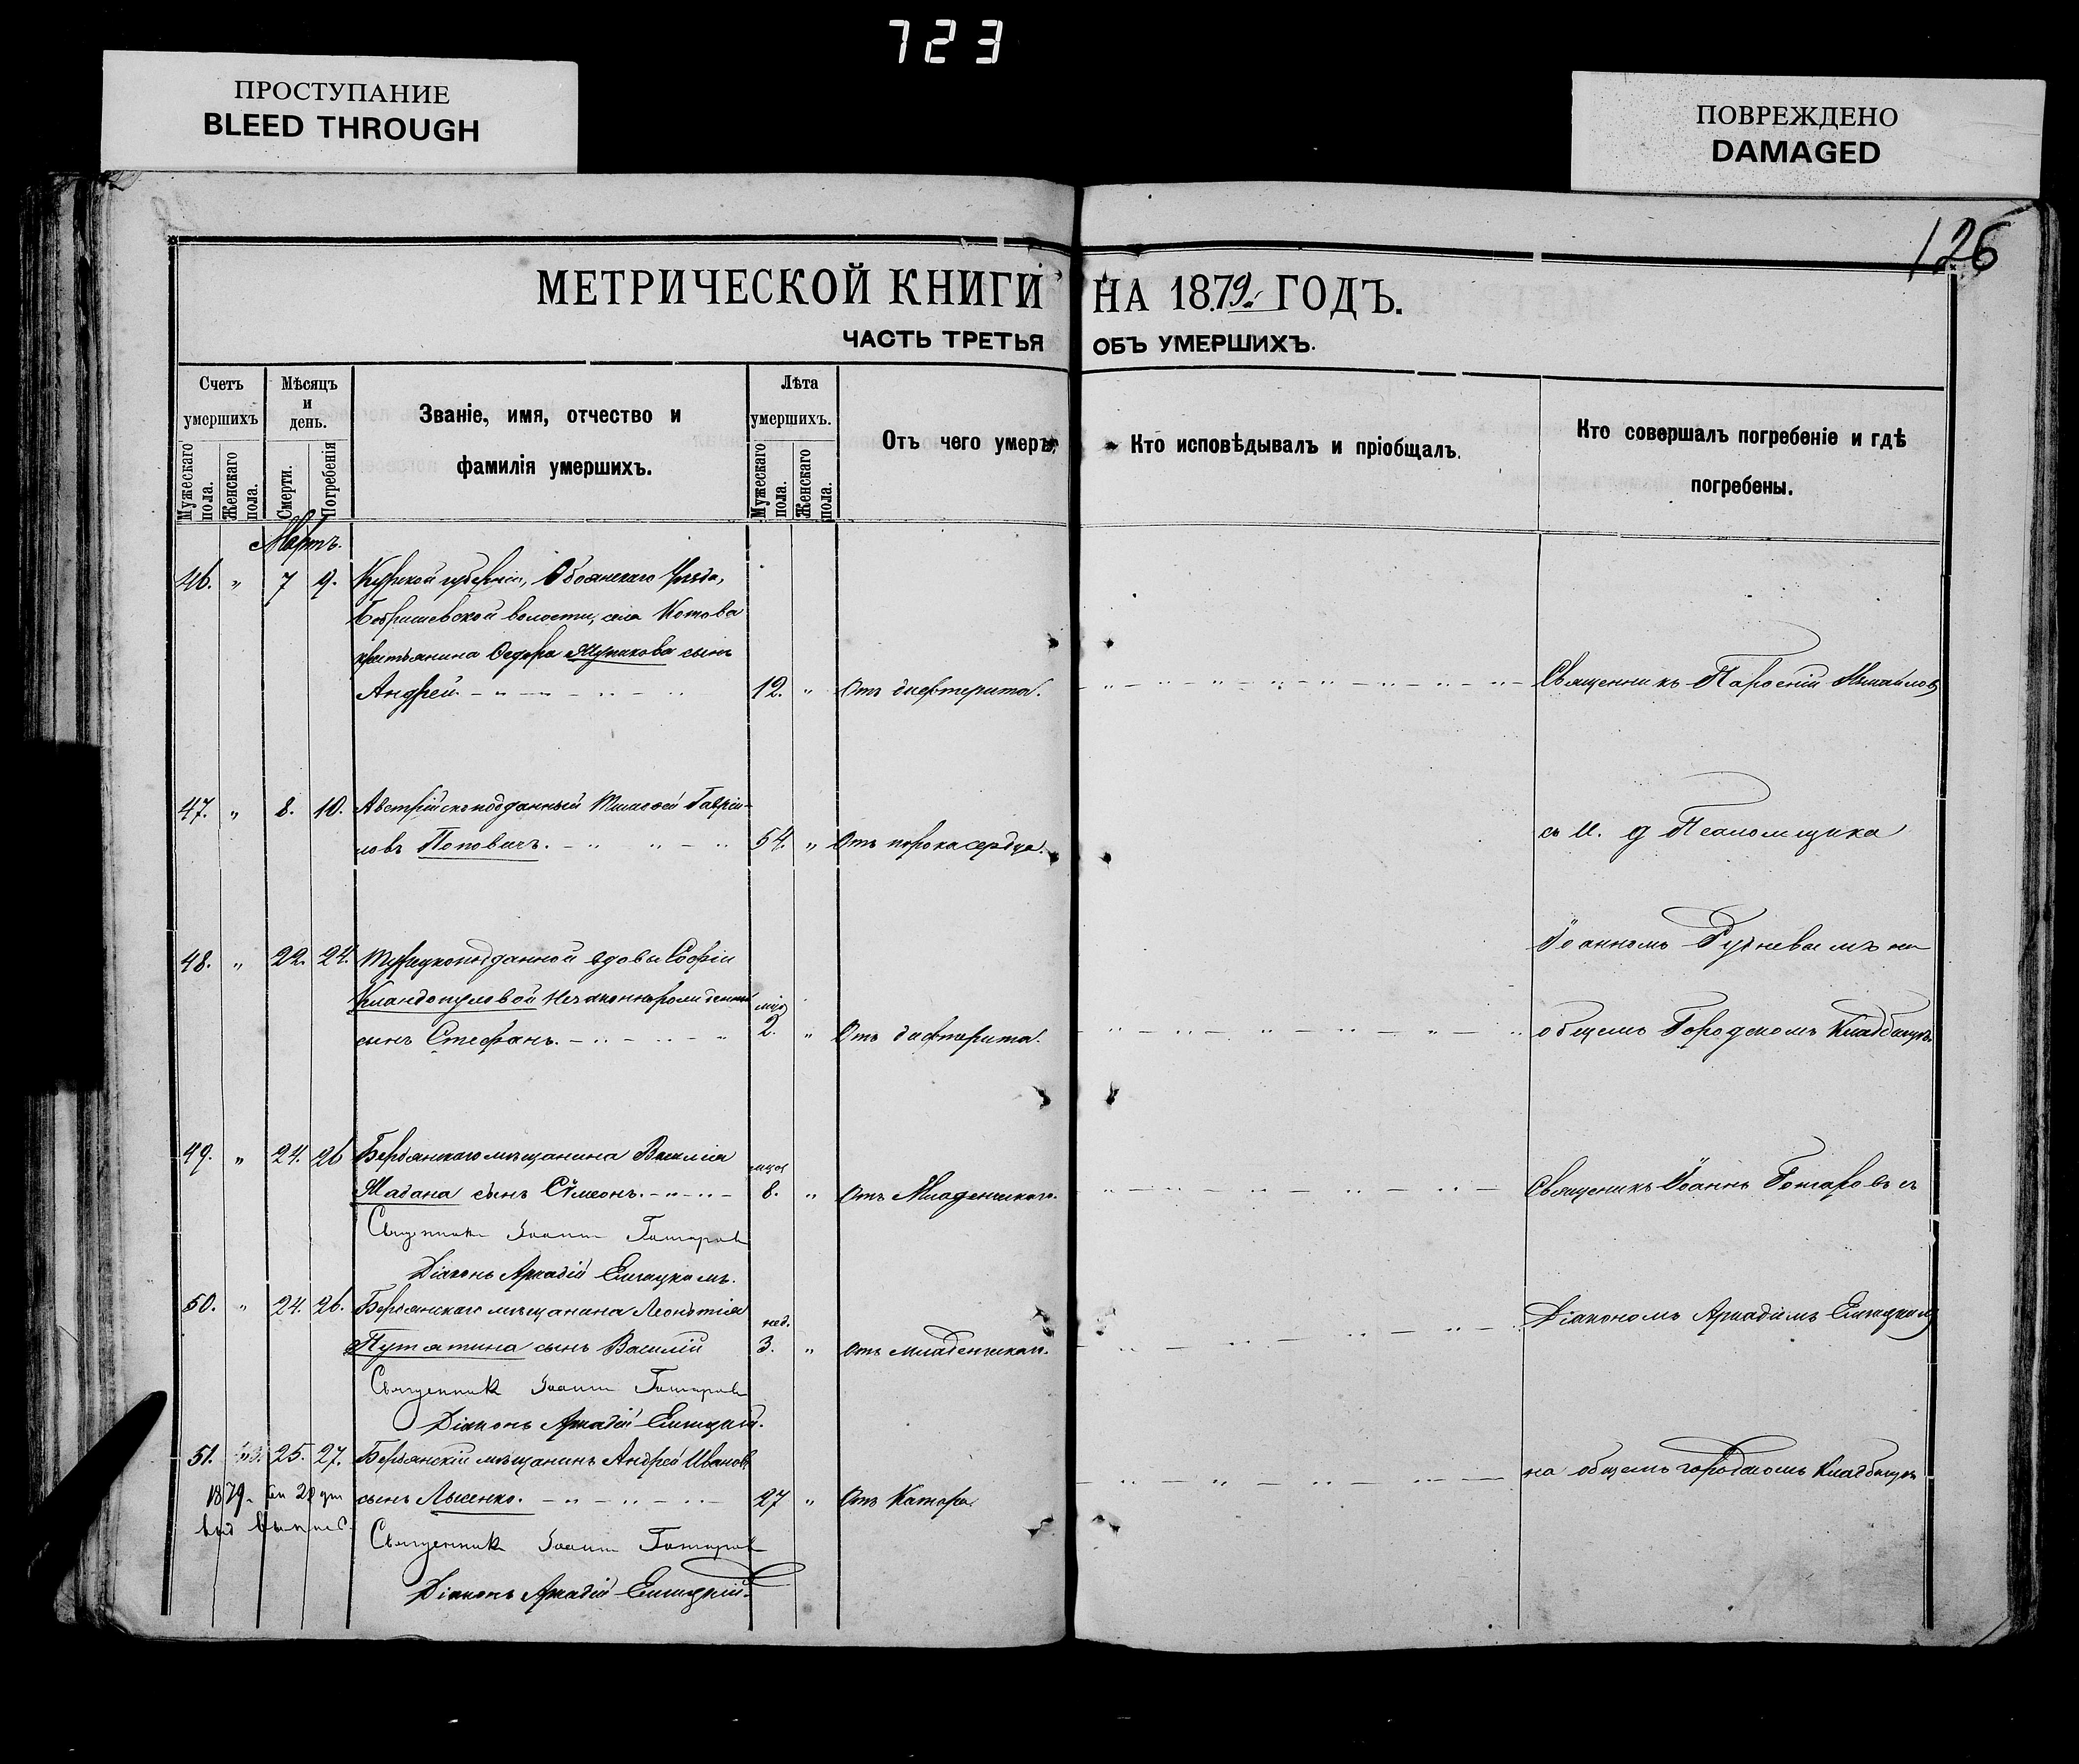 723
ПРОСТУПАНИЕ
BLEED THROUGH
ПОВРЕЖДЕНО
DAMAGED
126
МЕТРИЧЕСКОЙ КНИГИ НА 1879. ГОДЪ.
ЧАСТЬ ТРЕТЬЯ ОБЪ УМЕРШИХЪ.
Счетъ умершихъ
Мужескаго пола.
Женскаго пола.
Мѣсяцъ и день.
Смерти.
Погребенія
Званіе, имя, отчество и
фамилія умершихъ.
Лѣта умершихъ.
Мужескаго пола.
Женскаго пола.
Отъ чего умеръ,
Кто исповѣдывалъ и пріобщалъ.
Кто совершалъ погребеніе и гдѣ
погребены.
Мартъ.
46. „ 7 9. Курской губерніи, Обоянскаго Уѣзда,
волости, села Котова
крестьянина Ѳедора сынъ
Андрей 12. „ Отъ дифтерита. Священникъ Парѳеній
47. „ 8. 10. Австрійскоподданный Тимоѳей Гаврiи-
ловъ Поповичъ. 54. „ Отъ порока сердца. съ И. д Псаломщика
Іоанномъ на
48. „ 22. 24. Турецкоподданной вдовы Софіи
незаконнорожденный
сынъ Стефанъ. 2. „ Отъ дифтерита. общемъ Городскомъ Кладбищѣ.
49. „ 24. 26 Бердянскаго мѣщанина Василія
сынъ Сѵмеонъ. 8. „ Отъ Младенческаго. Священикъ Іоаннъ Гончаровъ съ
Священникъ Іоаннъ Гончаровъ
Діаконъ Аркадій
50. „ 24. 26. Бердянскаго мѣщанина Леонтія Діакономъ Аркадіемъ
Путятина сынъ Василій нед. 3. „ Отъ младенческаго.
Священникъ Іоаннъ Гончаровъ
Діаконъ Аркадій
51. 25. 27. Бердянскій мѣщанинъ Андрей Ивановъ на общемъ городскомъ Кладбищѣ
1879. сынъ Лысенко. 27 „ Отъ
Священникъ Іоаннъ Гончаровъ
Діаконъ Аркадій